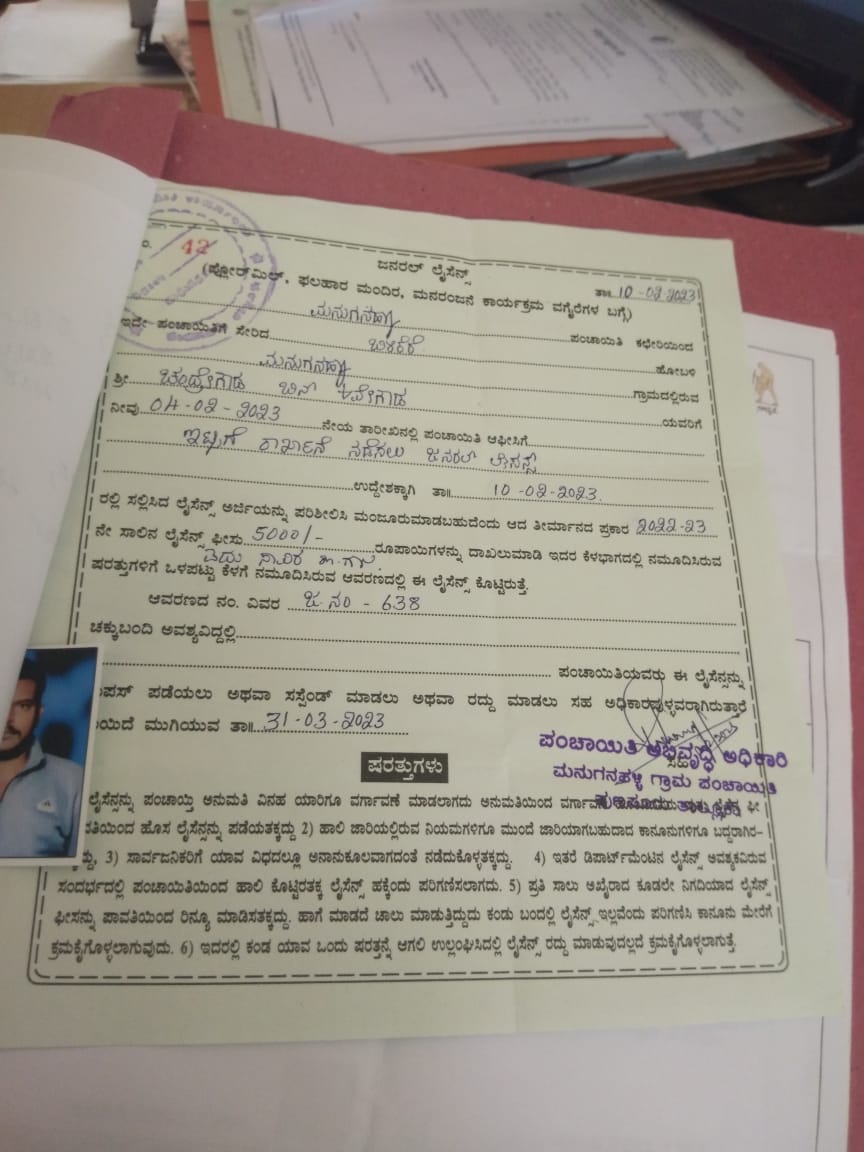 42
ಜನರಲ್ ಲೈಸೆನ್ಸ್
ತಾ॥ 10-02-2023
(ಫ್ಲೋರ್‌ಮಿಲ್, ಫಲಹಾರ ಮಂದಿರ, ಮನರಂಜನೆ ಕಾರ್ಯಕ್ರಮ ವಗೈರೆಗಳ ಬಗ್ಗೆ)
ಮನುಗನಹಳ್ಳಿ ಪಂಚಾಯಿತಿ ಕಛೇರಿಯಿಂದ
ಇದೇ ಪಂಚಾಯಿತಿಗೆ ಸೇರಿದ ಬಿಳಿಕೆರೆ ಹೋಬಳಿ
ಮನುಗನಹಳ್ಳಿ ಗ್ರಾಮದಲ್ಲಿರುವ
ಶ್ರೀ ಚಂದ್ರೇಗೌಡ ಬಿನ್ ಯವರಿಗೆ
ನೀವು 04-02-2023 ನೇಯ ತಾರೀಖಿನಲ್ಲಿ ಪಂಚಾಯಿತಿ ಆಫೀಸಿಗೆ
ಇಟ್ಟಿಗೆ ಕಾರ್ಖಾನೆ ನಡೆಸಲು ಜನರಲ್ ಲೈಸನ್ಸ್
ಉದ್ದೇಶಕ್ಕಾಗಿ ತಾ॥ 10-02-2023.
ರಲ್ಲಿ ಸಲ್ಲಿಸಿದ ಲೈಸೆನ್ಸ್ ಅರ್ಜಿಯನ್ನು ಪರಿಶೀಲಿಸಿ ಮಂಜೂರುಮಾಡಬಹುದೆಂದು ಆದ ತೀರ್ಮಾನದ ಪ್ರಕಾರ 2022-23
ನೇ ಸಾಲಿನ ಲೈಸೆನ್ಸ್ ಫೀಸು 5000/- ರೂಪಾಯಿಗಳನ್ನು ದಾಖಲುಮಾಡಿ ಇದರ ಕೆಳಭಾಗದಲ್ಲಿ ನಮೂದಿಸಿರುವ
ಐದು ಸಾವಿರ
ಷರತ್ತುಗಳಿಗೆ ಒಳಪಟ್ಟು ಕೆಳಗೆ ನಮೂದಿಸಿರುವ ಆವರಣದಲ್ಲಿ ಈ ಲೈಸೆನ್ಸ್ ಕೊಟ್ಟಿರುತ್ತೆ.
ಆವರಣದ ನಂ. ವಿವರ ಜ.ನಂ - 638
ಚಕ್ಕುಬಂದಿ ಅವಶ್ಯವಿದ್ದಲ್ಲಿ
ಪಂಚಾಯಿತಿಯವರು ಈ ಲೈಸೆನ್ಸನ್ನು
ಪಡೆಯಲು ಅಥವಾ ಸಸ್ಪೆಂಡ್ ಮಾಡಲು ಅಥವಾ ರದ್ದು ಮಾಡಲು ಸಹ ಅಧಿಕಾರವುಳ್ಳವರಾಗಿರುತ್ತಾರೆ
ಮುಗಿಯುವ ತಾ॥ 31-03-2023
ಸಹಿ
ಪಂಚಾಯಿತಿ ಅಭಿವೃದ್ಧಿ ಅಧಿಕಾರಿ
ಮನುಗನಹಳ್ಳಿ ಗ್ರಾಮ ಪಂಚಾಯಿತಿ
ಷರತ್ತುಗಳು
ಲೈಸೆನ್ಸನ್ನು ಪಂಚಾಯ್ತಿ ಅನುಮತಿ ವಿನಹ ಯಾರಿಗೂ ವರ್ಗಾವಣೆ ಮಾಡಲಾಗದು ಅನುಮತಿಯಿಂದ ಫೀ
ಹೊಸ ಲೈಸೆನ್ಸನ್ನು ಪಡೆಯತಕ್ಕದ್ದು 2) ಹಾಲಿ ಜಾರಿಯಲ್ಲಿರುವ ನಿಯಮಗಳಿಗೂ ಮುಂದೆ ಜಾರಿಯಾಗಬಹುದಾದ ಕಾನೂನುಗಳಿಗೂ ಬದ್ಧರಾಗಿರ-
3) ಸಾರ್ವಜನಿಕರಿಗೆ ಯಾವ ವಿಧದಲ್ಲೂ ಅನಾನುಕೂಲವಾಗದಂತೆ ನಡೆದುಕೊಳ್ಳತಕ್ಕದ್ದು. 4) ಇತರೆ ಡಿಪಾರ್ಟ್‌ಮೆಂಟಿನ ಲೈಸೆನ್ಸ್ ಅವಶ್ಯಕವಿರುವ
ಸಂದರ್ಭದಲ್ಲಿ ಪಂಚಾಯಿತಿಯಿಂದ ಹಾಲಿ ಕೊಟ್ಟಿರತಕ್ಕ ಲೈಸೆನ್ಸ್ ಹಕ್ಕೆಂದು ಪರಿಗಣಿಸಲಾಗದು. 5) ಪ್ರತಿ ಸಾಲು ಅಖೈರಾದ ಕೂಡಲೇ ನಿಗದಿಯಾದ ಲೈಸೆನ್ಸ್
ಫೀಸನ್ನು ಪಾವತಿಯಿಂದ ರಿನ್ಯೂ ಮಾಡಿಸತಕ್ಕದ್ದು. ಹಾಗೆ ಮಾಡದೆ ಚಾಲು ಮಾಡುತ್ತಿದ್ದುದು ಕಂಡು ಬಂದಲ್ಲಿ ಲೈಸೆನ್ಸ್ ಇಲ್ಲವೆಂದು ಪರಿಗಣಿಸಿ ಕಾನೂನು ಮೇರೆಗೆ
ಕ್ರಮಕೈಗೊಳ್ಳಲಾಗುವುದು. 6) ಇದರಲ್ಲಿ ಕಂಡ ಯಾವ ಒಂದು ಷರತ್ತನ್ನೆ ಆಗಲಿ ಉಲ್ಲಂಘಿಸಿದಲ್ಲಿ ಲೈಸೆನ್ಸ್ ರದ್ದು ಮಾಡುವುದಲ್ಲದೆ ಕ್ರಮಕೈಗೊಳ್ಳಲಾಗುತ್ತೆ